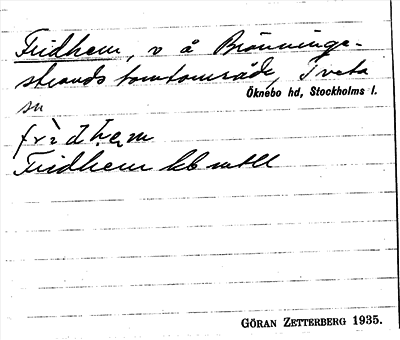 Fridhem, v å Brönninge-
strands tomtområde, Tveta
Öknebo hd, Stockholms l.
sn
frìdhem
Fridhem kb mtll
GÖRAN ZETTERBERG 1935.